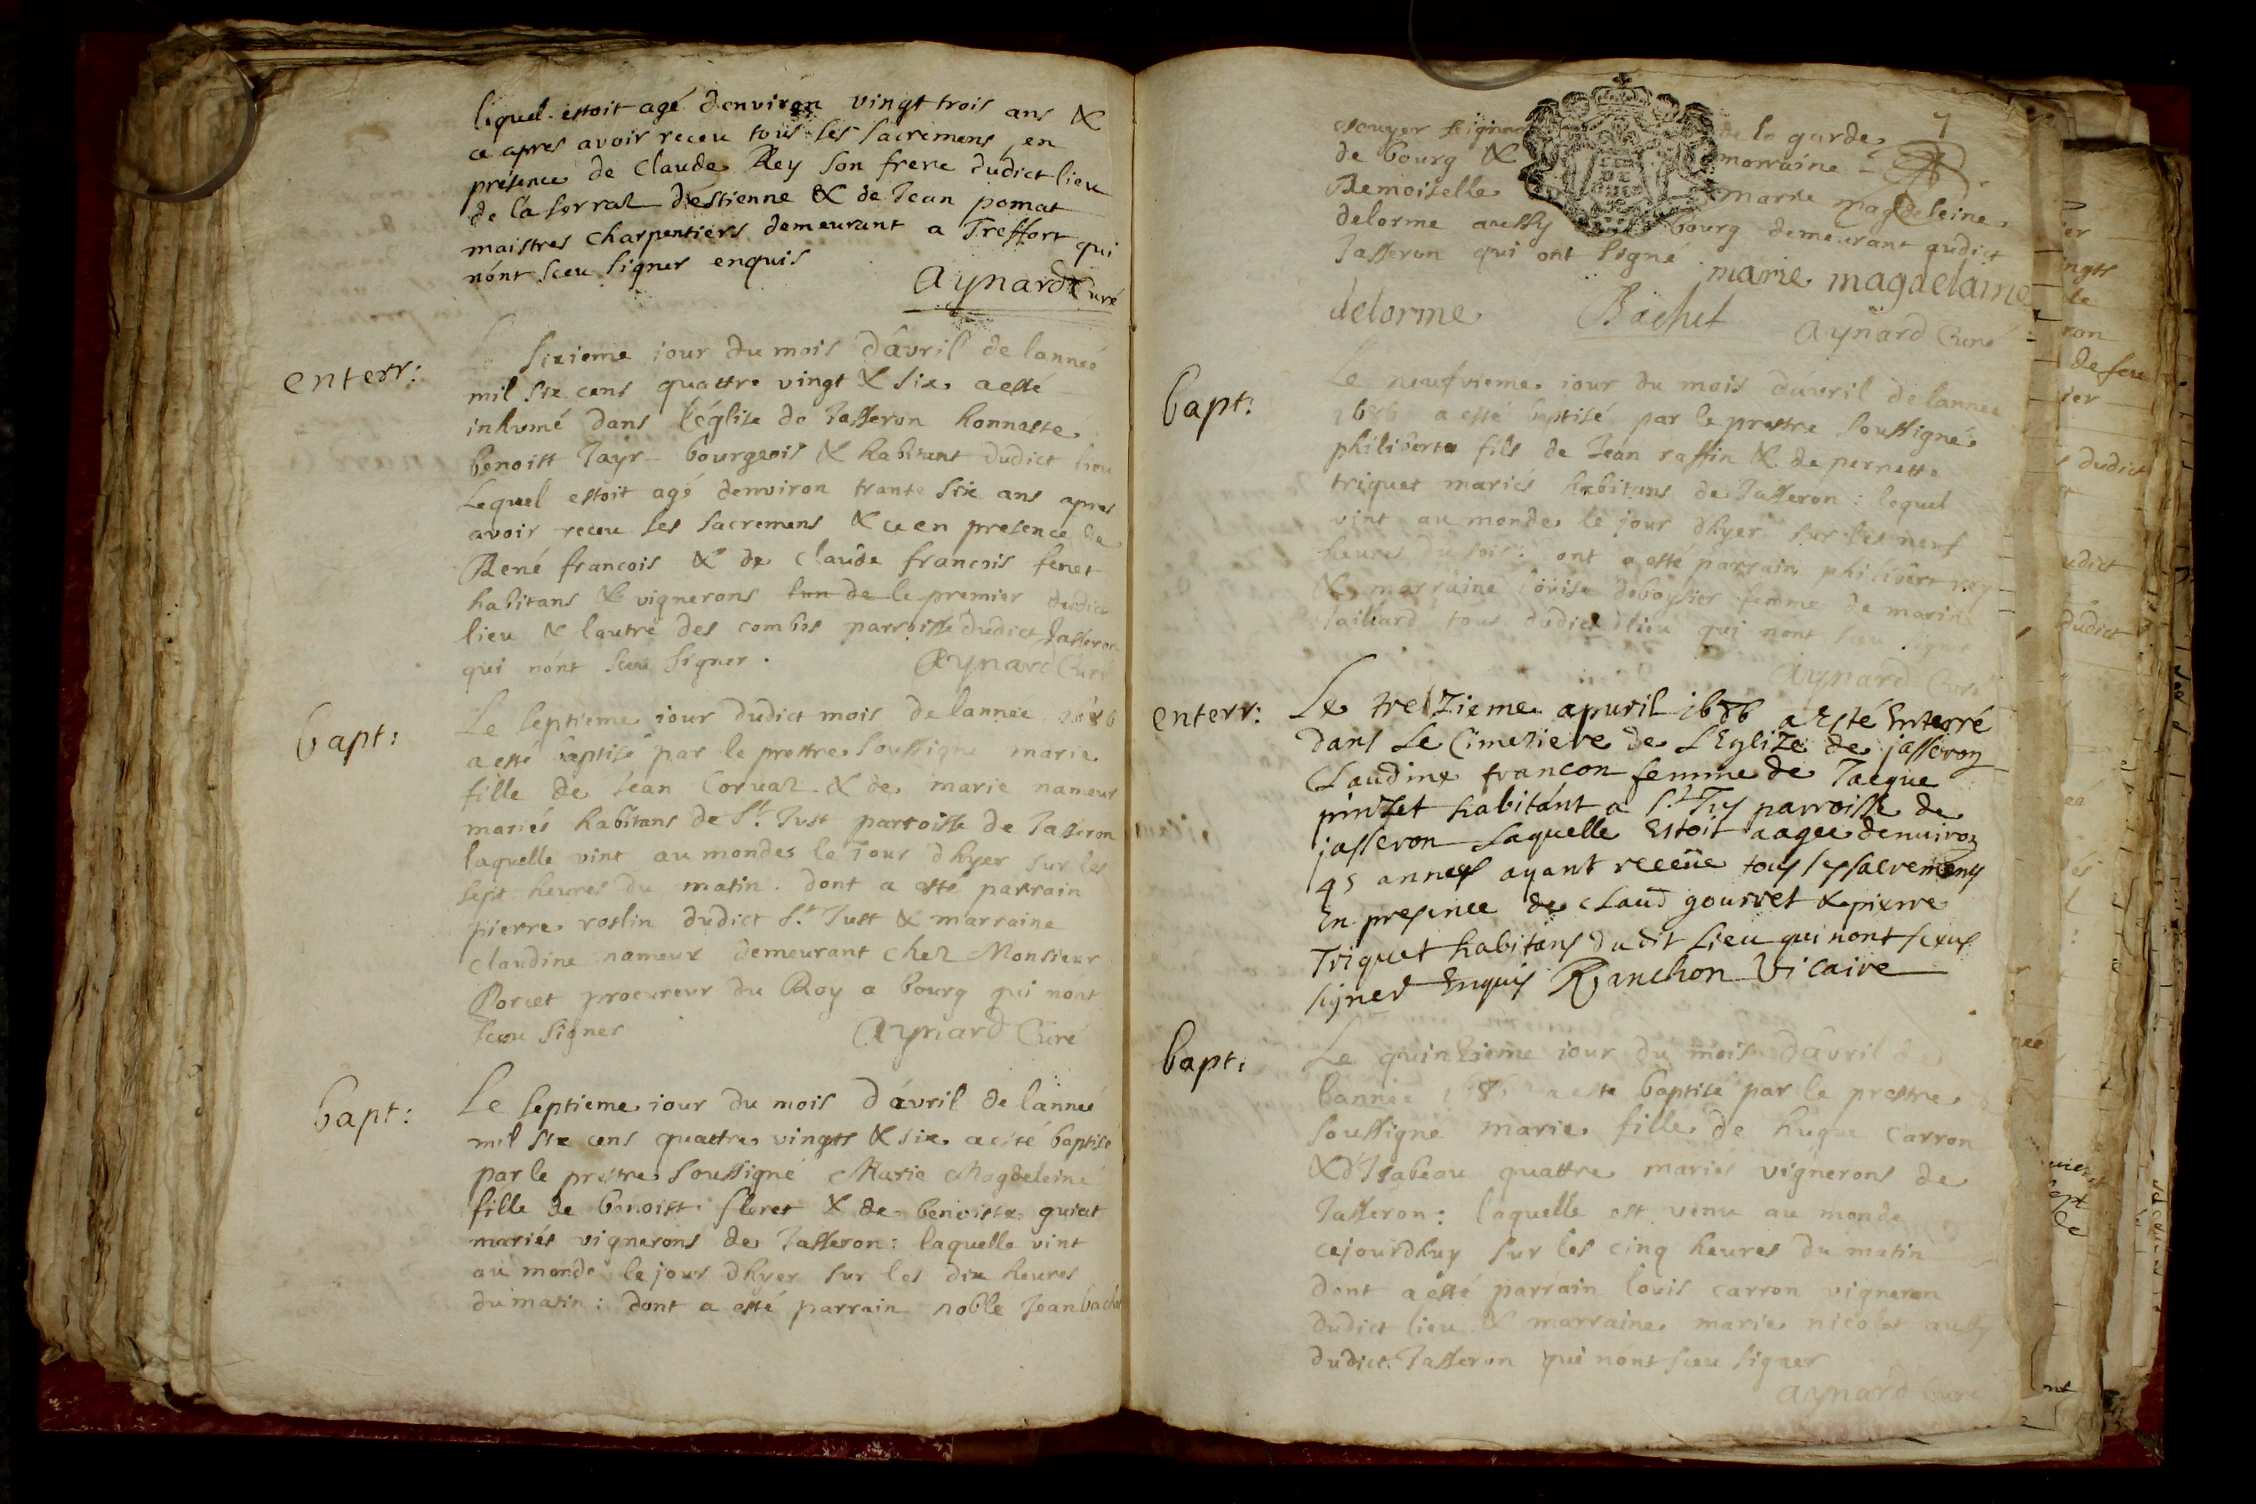 lequel estoit agé denviron vingt trois ans &
ce apres avoir receu tous les sacremens en
présence de Claude Rey son frere dudict lieu
de la serraz d'estienne & de Jean pomat
maistres charpentiers demeurant a Treffort qui
nônt sceu signer enquis
Aynard Curé
enterr:
sixieme iour du mois d'avril de lanneé
mil six cens quattre vingt & six a esté
inhumé dans l'église de Jasseron honneste
benoist Jayr bourgeois & habitant dudict lieu
Lequel estoit agé denviron trante six ans apres
avoir receu ses sacremens & ce en presence de
René francois & de Claude francois fenet
habitans & vignerons lun de le premier dudict
lieu & lautre des combes parroisse dudict Jasseron
qui nônt sceu signer.
Aynard Curé
bapt:
Le septieme iour dudict mois de lanneé 1686
a esté baptisé par le prestre soussigné marie
fille de Jean Corvaz & de marie nameur
mariés habitans de St. Just parroisse de Jasseron
laquelle vint au monde le jour d'hyer sur les
sept heures du matin. dont a esté parrain
pierre roslin dudict St. Just & marraine
Claudine nameur demeurant chez Monsieur
Porcet procureur du Roy a bourg qui nont
sceu signer
Aynard Curé
bapt:
Le septieme iour du mois d'avril de lanneé
mil six cens quattre vingts & six a esté baptisé
par le prestre soussigné Marie Magdeleine
fille de benoist floret & de benoiste guiat
mariés vignerons de Jasseron: laquelle vint
au monde le jour d'hyer sur les dix heures
du matin: dont a esté parrain noble Jean bachet
7
escuyer seigneur de la garde
de bourg & marraine
Demoiselle marie magdeleine
delorme aussy bourg demeurant audict
Jasseron qui ont signé
marie magdelaine
delorme Bachet Aynard Curé
bapt:
Le neufvieme iour du mois d'avril de lanneé
1686 a esté baptisé par le prestre soussigné
philiberte fils de Jean raffin & de pernette
triquet mariés habitans de Jasseron: lequel
vint au monde le jour d'hyer sur les neuf
heures du soir: ont a esté parrain philibert rey
& marraine loüise deboysier femme de marin
taillard tous dudict lieu qui nont sceu signer
Aynard Curé
enterr:
Le treizieme apuril 1686 a Esté Enterré
dans Le Cimetiere de L'Eglize de jasseron
Claudine françon femme de Jacque
pinzet habitant a St. Just parroisse de
jasseron Laquelle Estoit aagée denuiron
45 annés ayant receüe tous les sacremens
En presence de claud gourret & pierre
Triquet habitans dudit Lieu qui nont sceus
signer Enquis Ranchon Vicaire
bapt:
Le quinzieme iour du mois d'avril de
lanneé 1686 a esté baptisé par le prestre
soussigné marie fille de hugue Carron
& d'Isabeau quattre mariés vignerons de
Jasseron: laquelle est venu au monde
cejourdhuy sur les cinq heures du matin
dont a esté parrain loüis carron vigneron
dudict lieu & marraine marie nicolat aussy
dudict Jasseron qui nônt sceu signer
Aynard Curé